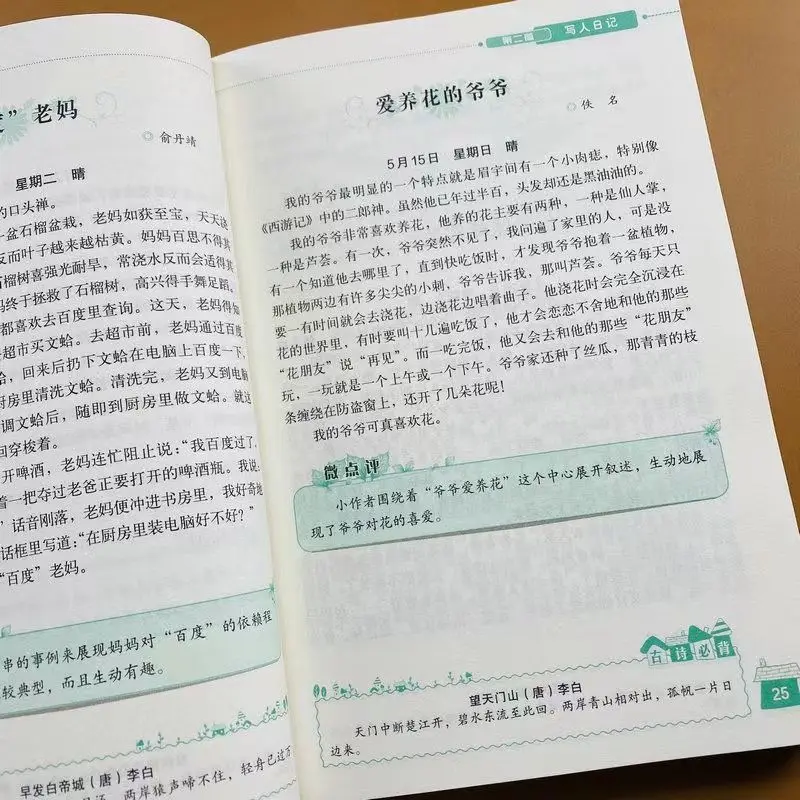 ”老妈
◎俞丹靖
星期二 晴
的口头禅。
一盆石榴盆栽，老妈如获至宝，天天浇
反而叶子越来越枯黄。妈妈百思不得其
石榴树喜强光耐旱，常浇水反而会适得其
妈终于拯救了石榴树，高兴得手舞足蹈。
都喜欢去百度里查询。这天，老妈得知
超市买文蛤。去超市前，老妈通过百度
蛤，回来后扔下文蛤在电脑上百度一下，
厨房里清洗文蛤。清洗完，老妈又到电脑
调文蛤后，随即到厨房里做文蛤。就这
回穿梭着。
开啤酒，老妈连忙阻止说：“我百度过了，
着一把夺过老爸正要打开的啤酒瓶。我说：
”话音刚落，老妈便冲进书房里，我好奇地
话框里写道：“在厨房里装电脑好不好？”
“百度”老妈。
串的事例来展现妈妈对“百度”的依赖程
较典型，而且生动有趣。
早发白帝城（唐）李白
两岸猿声啼不住，轻舟已过万
第二篇 写人日记
爱养花的爷爷
◎佚 名
5月15日 星期日 晴
我的爷爷最明显的一个特点就是眉宇间有一个小肉痣，特别像
《西游记》中的二郎神。虽然他已年过半百，头发却还是黑油油的。
我的爷爷非常喜欢养花，他养的花主要有两种，一种是仙人掌，
一种是芦荟。有一次，爷爷突然不见了，我问遍了家里的人，可是没
有一个知道他去哪里了，直到快吃饭时，才发现爷爷抱着一盆植物，
那植物两边有许多尖尖的小刺，爷爷告诉我，那叫芦荟。爷爷每天只
要一有时间就会去浇花，边浇花边唱着曲子。他浇花时会完全沉浸在
花的世界里，有时要叫十几遍吃饭了，他才会恋恋不舍地和他的那些
“花朋友”说“再见”。而一吃完饭，他又会去和他的那些“花朋友”
玩，一玩就是一个上午或一个下午。爷爷家还种了丝瓜，那青青的枝
条缠绕在防盗窗上，还开了几朵花呢！
我的爷爷可真喜欢花。
微点评
小作者围绕着“爷爷爱养花”这个中心展开叙述，生动地展
现了爷爷对花的喜爱。
古诗必背
望天门山（唐）李白
天门中断楚江开，碧水东流至此回。两岸青山相对出，孤帆一片日
边来。
25